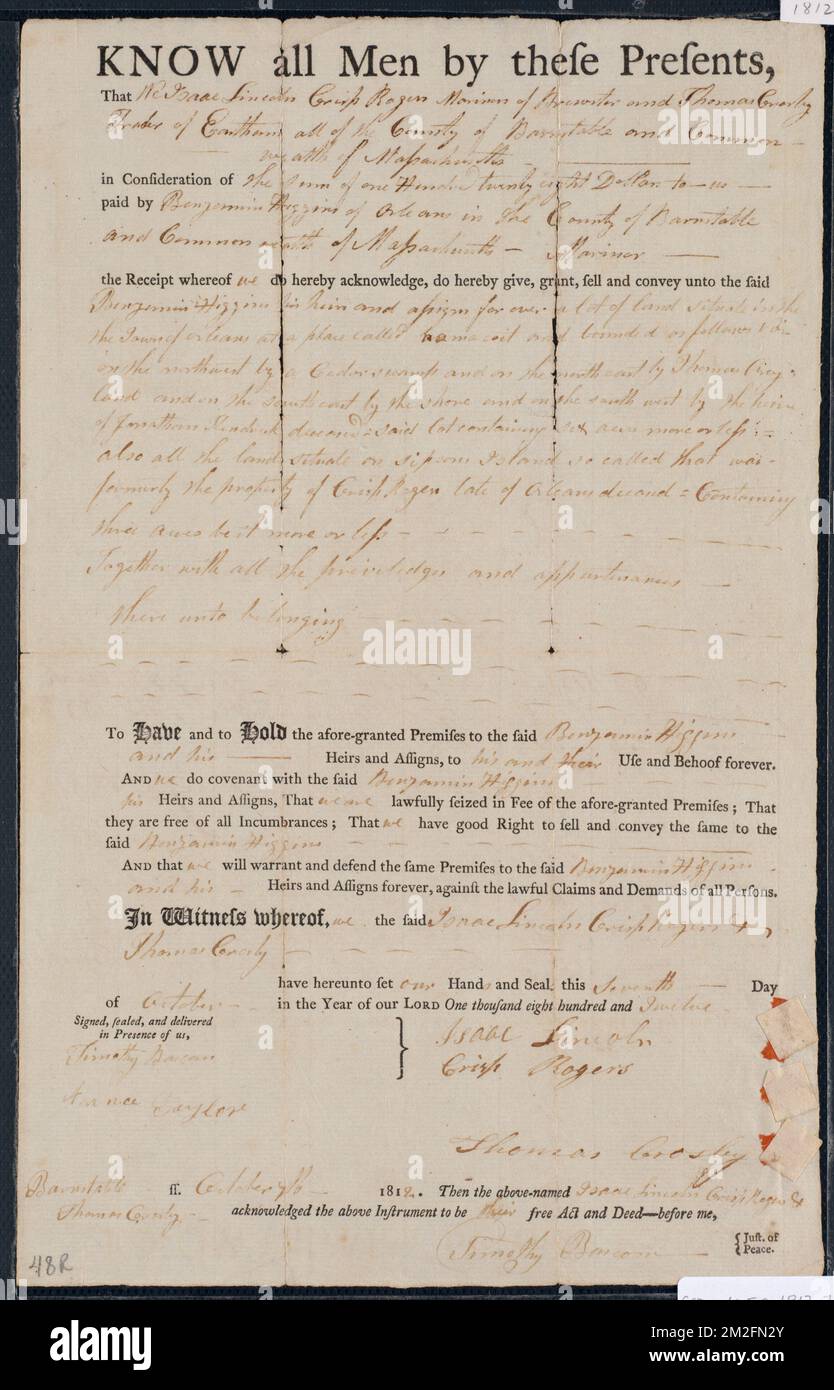 1812
KNOW all Men by theſe Preſents,
That We Isaac Lincoln Crisp Rogers Mariners of Brewster and Thomas Crosby
Trader of Eastham all of the County of Barnstable and Common-
wealth of Massachusetts
in Conſideration of the Sum of one Hundred twenty eight Dollars to us
paid by Benjamin Higgins of Orleans in the County of Barnstable
and Commonwealth of Massachusetts - Mariner
the Receipt whereof we do hereby acknowledge, do hereby give, grant, ſell and convey unto the ſaid
Benjamin Higgins his heirs and assigns for ever a lot of land situate in the
the Town of Orleans at a place called and bounded as follows viz
on the northwest by a Cedar swamp and on the north east by Thomas
land and on the south east by the shore and on the south west by the heirs
of Jonathan Kendrick deceased - said lot containing six acres more or less =
also all the land situate on sipsons Island so called that was
formerly the property of Crisp Rogers late of Orleans deceasd = Containing
three acres be it more or less
Together with all the priviledges and appurtenances
there unto belonging
To Have and to Hold the afore-granted Premiſes to the ſaid Benjamin Higgins
and his Heirs and Aſſigns, to his and their Uſe and Behoof forever.
AND we do covenant with the ſaid Benjamin Higgins
his Heirs and Aſſigns, That we are lawfully ſeized in Fee of the afore-granted Premiſes; That
they are free of all Incumbrances; That we have good Right to ſell and convey the ſame to the
ſaid Benjamin Higgins
AND that we will warrant and defend the ſame Premiſes to the ſaid Benjamin Higgins
and his Heirs and Aſſigns forever, againſt the lawful Claims and Demands of all Perſons.
In Witneſs whereof, we the ſaid Isaac Lincoln Crisp Rogers &
Thomas Crosby
have hereunto ſet our Hands and Seal, this Seventh Day
of October in the Year of our LORD One thouſand eight hundred and Twelve
Signed, ſealed, and delivered
in Preſence of us,
Isaac Lincoln
Timothy Bascom
Crisp Rogers
Taylor
Thomas Crosby
Barnstable ſſ. October 7th 1812. Then the above-named Isaac Lincoln Crisp Rogers &
Thomas Crosby acknowledged the above Inſtrument to be their free Act and Deed—before me,
Timothy Bascom { Juſt. of
Peace.
48R
alamy
alamy
Image ID: 2M2FN2Y
www.alamy.com